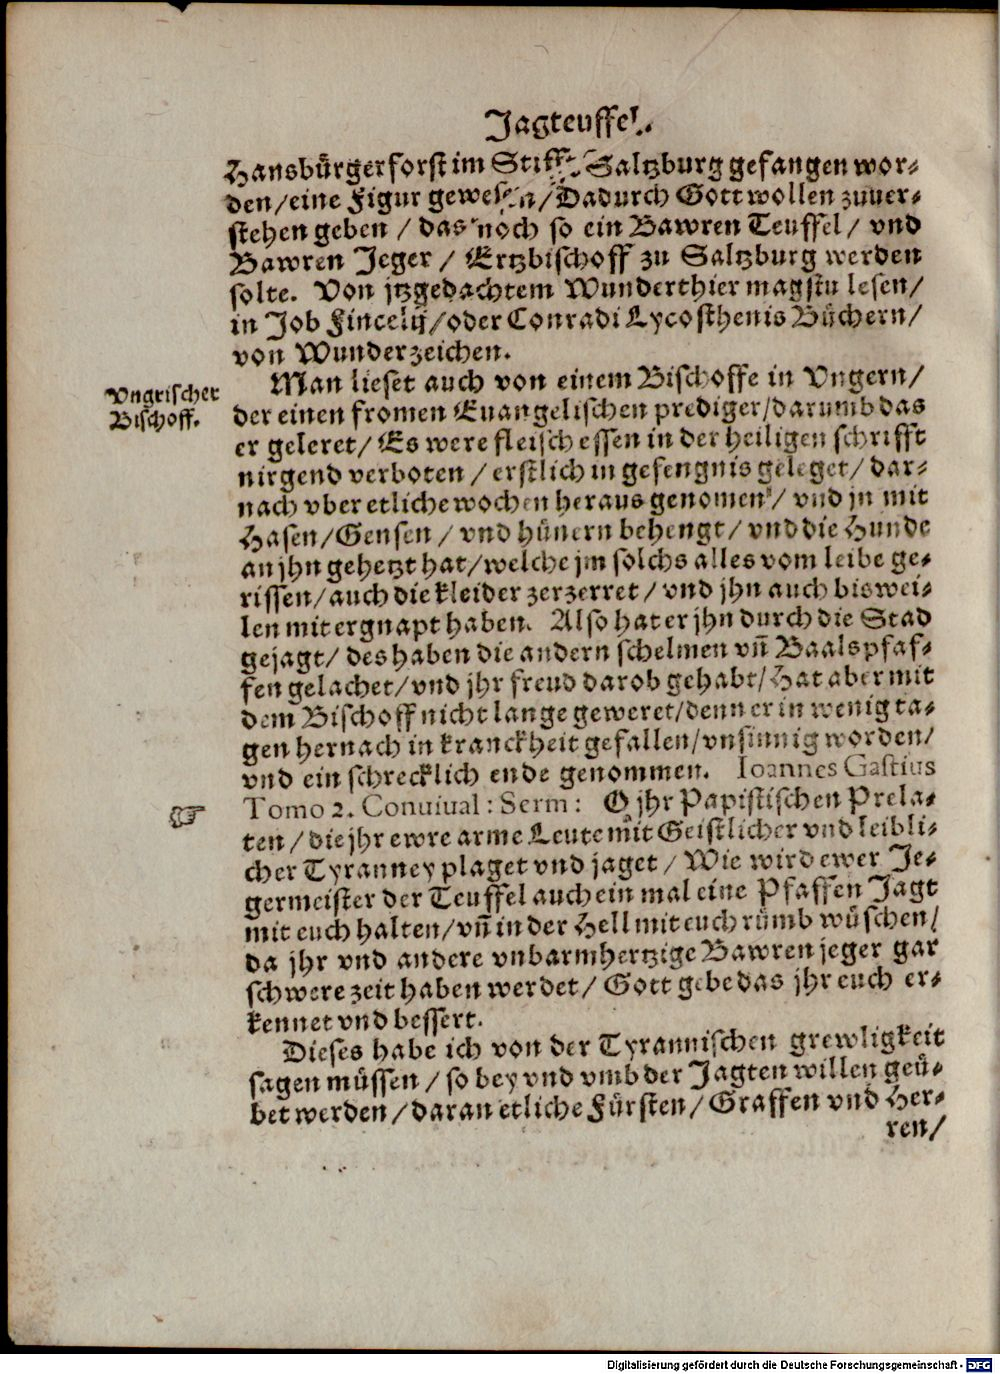 Jagteuffel.
Hansbürgerforst im Stifft Saltzburg gefangen wor-
den/eine Figur gewesen/Dadurch Gott wollen zuuer-
stehen geben / das noch so ein Bawren Teuffel/ vnd
Bawren Jeger / Ertzbischoff zu Saltzburg werden
solte. Von jtzgedachtem Wunderthier magstu lesen/
in Job Fincelij/oder Conradi Lycosthenis Büchern/
von Wunderzeichen.
Man lieset auch von einem Bischoffe in Vngern/
Vngrischer
Bischoff.
der einen fromen Euangelischen prediger/darumb das
er geleret/ Es were fleisch essen in der heiligen schrifft
nirgend verboten / erstlich in gefengnis geleget/ dar-
nach vber etliche wochen heraus genomen/ vnd jn mit
Hasen/Gensen / vnd hünern behengt/ vnd die Hunde
an jhn gehetzt hat/welche jm solchs alles vom leibe ge-
rissen/auch die kleider zerzerret/ vnd jhn auch biswei-
len mit ergnapt haben. Also hat er jhn durch die Stad
gejagt/ des haben die andern schelmen vñ Baalspfaf-
fen gelachet/vnd jhr freud darob gehabt/Hat aber mit
dem Bischoff nicht lange geweret/denn er in wenig ta-
gen hernach in kranckheit gefallen/vnsinnig worden/
vnd ein schrecklich ende genommen. Ioannes Gastius
☞ Tomo 2. Conuiual: Serm: O jhr Papistischen Prela-
ten/die jhr ewre arme Leute mit Geistlicher vnd leibli-
cher Tyranney plaget vnd jaget/ Wie wird ewer Je-
germeister der Teuffel auch ein mal eine Pfaffen Jagt
mit euch halten/vñ in der Hell mit euch rümb wüschen/
da jhr vnd andere vnbarmhertzige Bawren jeger gar
schwere zeit haben werdet/ Gott gebe das jhr euch er-
kennet vnd bessert.
Dieses habe ich von der Tyrannischen grewligkeit
sagen müssen / so bey vnd vmb der Jagten willen geü-
bet werden/daran etliche Fürsten/Graffen vnd Her-
ren/
Digitalisierung gefördert durch die Deutsche Forschungsgemeinschaft - DFG